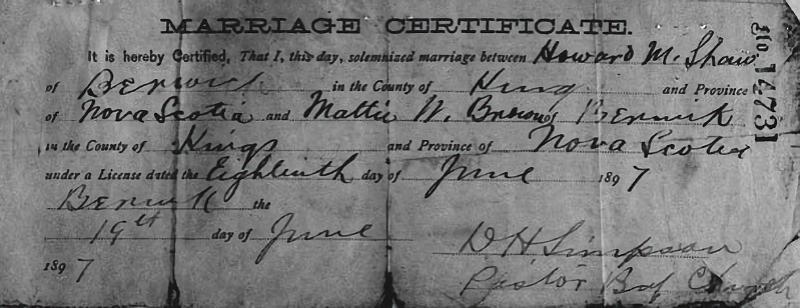 MARRIAGE CERTIFICATE.
It is hereby Certified, That I, this day, solemnized marriage between Howard M. Shaw
of Berwick in the County of Kings and Province
of Nova Scotia and Mattie W. Brown of Berwick
in the County of Kings and Province of Nova Scotia
under a License dated the Eighteenth day of June 1897
Berwick the
19th day of June D H Simpson
1897 Pastor Bap Church
No. 14731